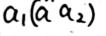 a₁(ä a₂)